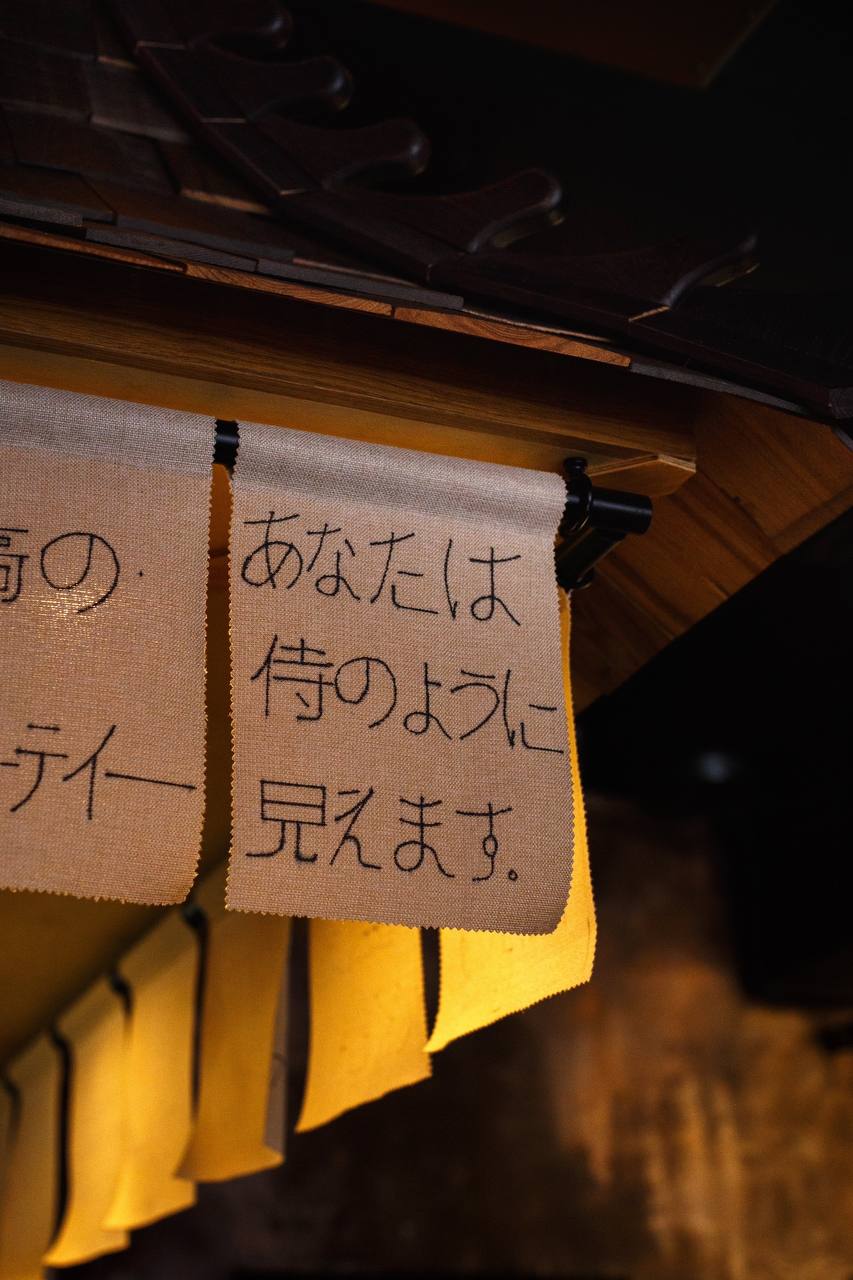 あなたは
侍のように
見えます。
高の
ーティー